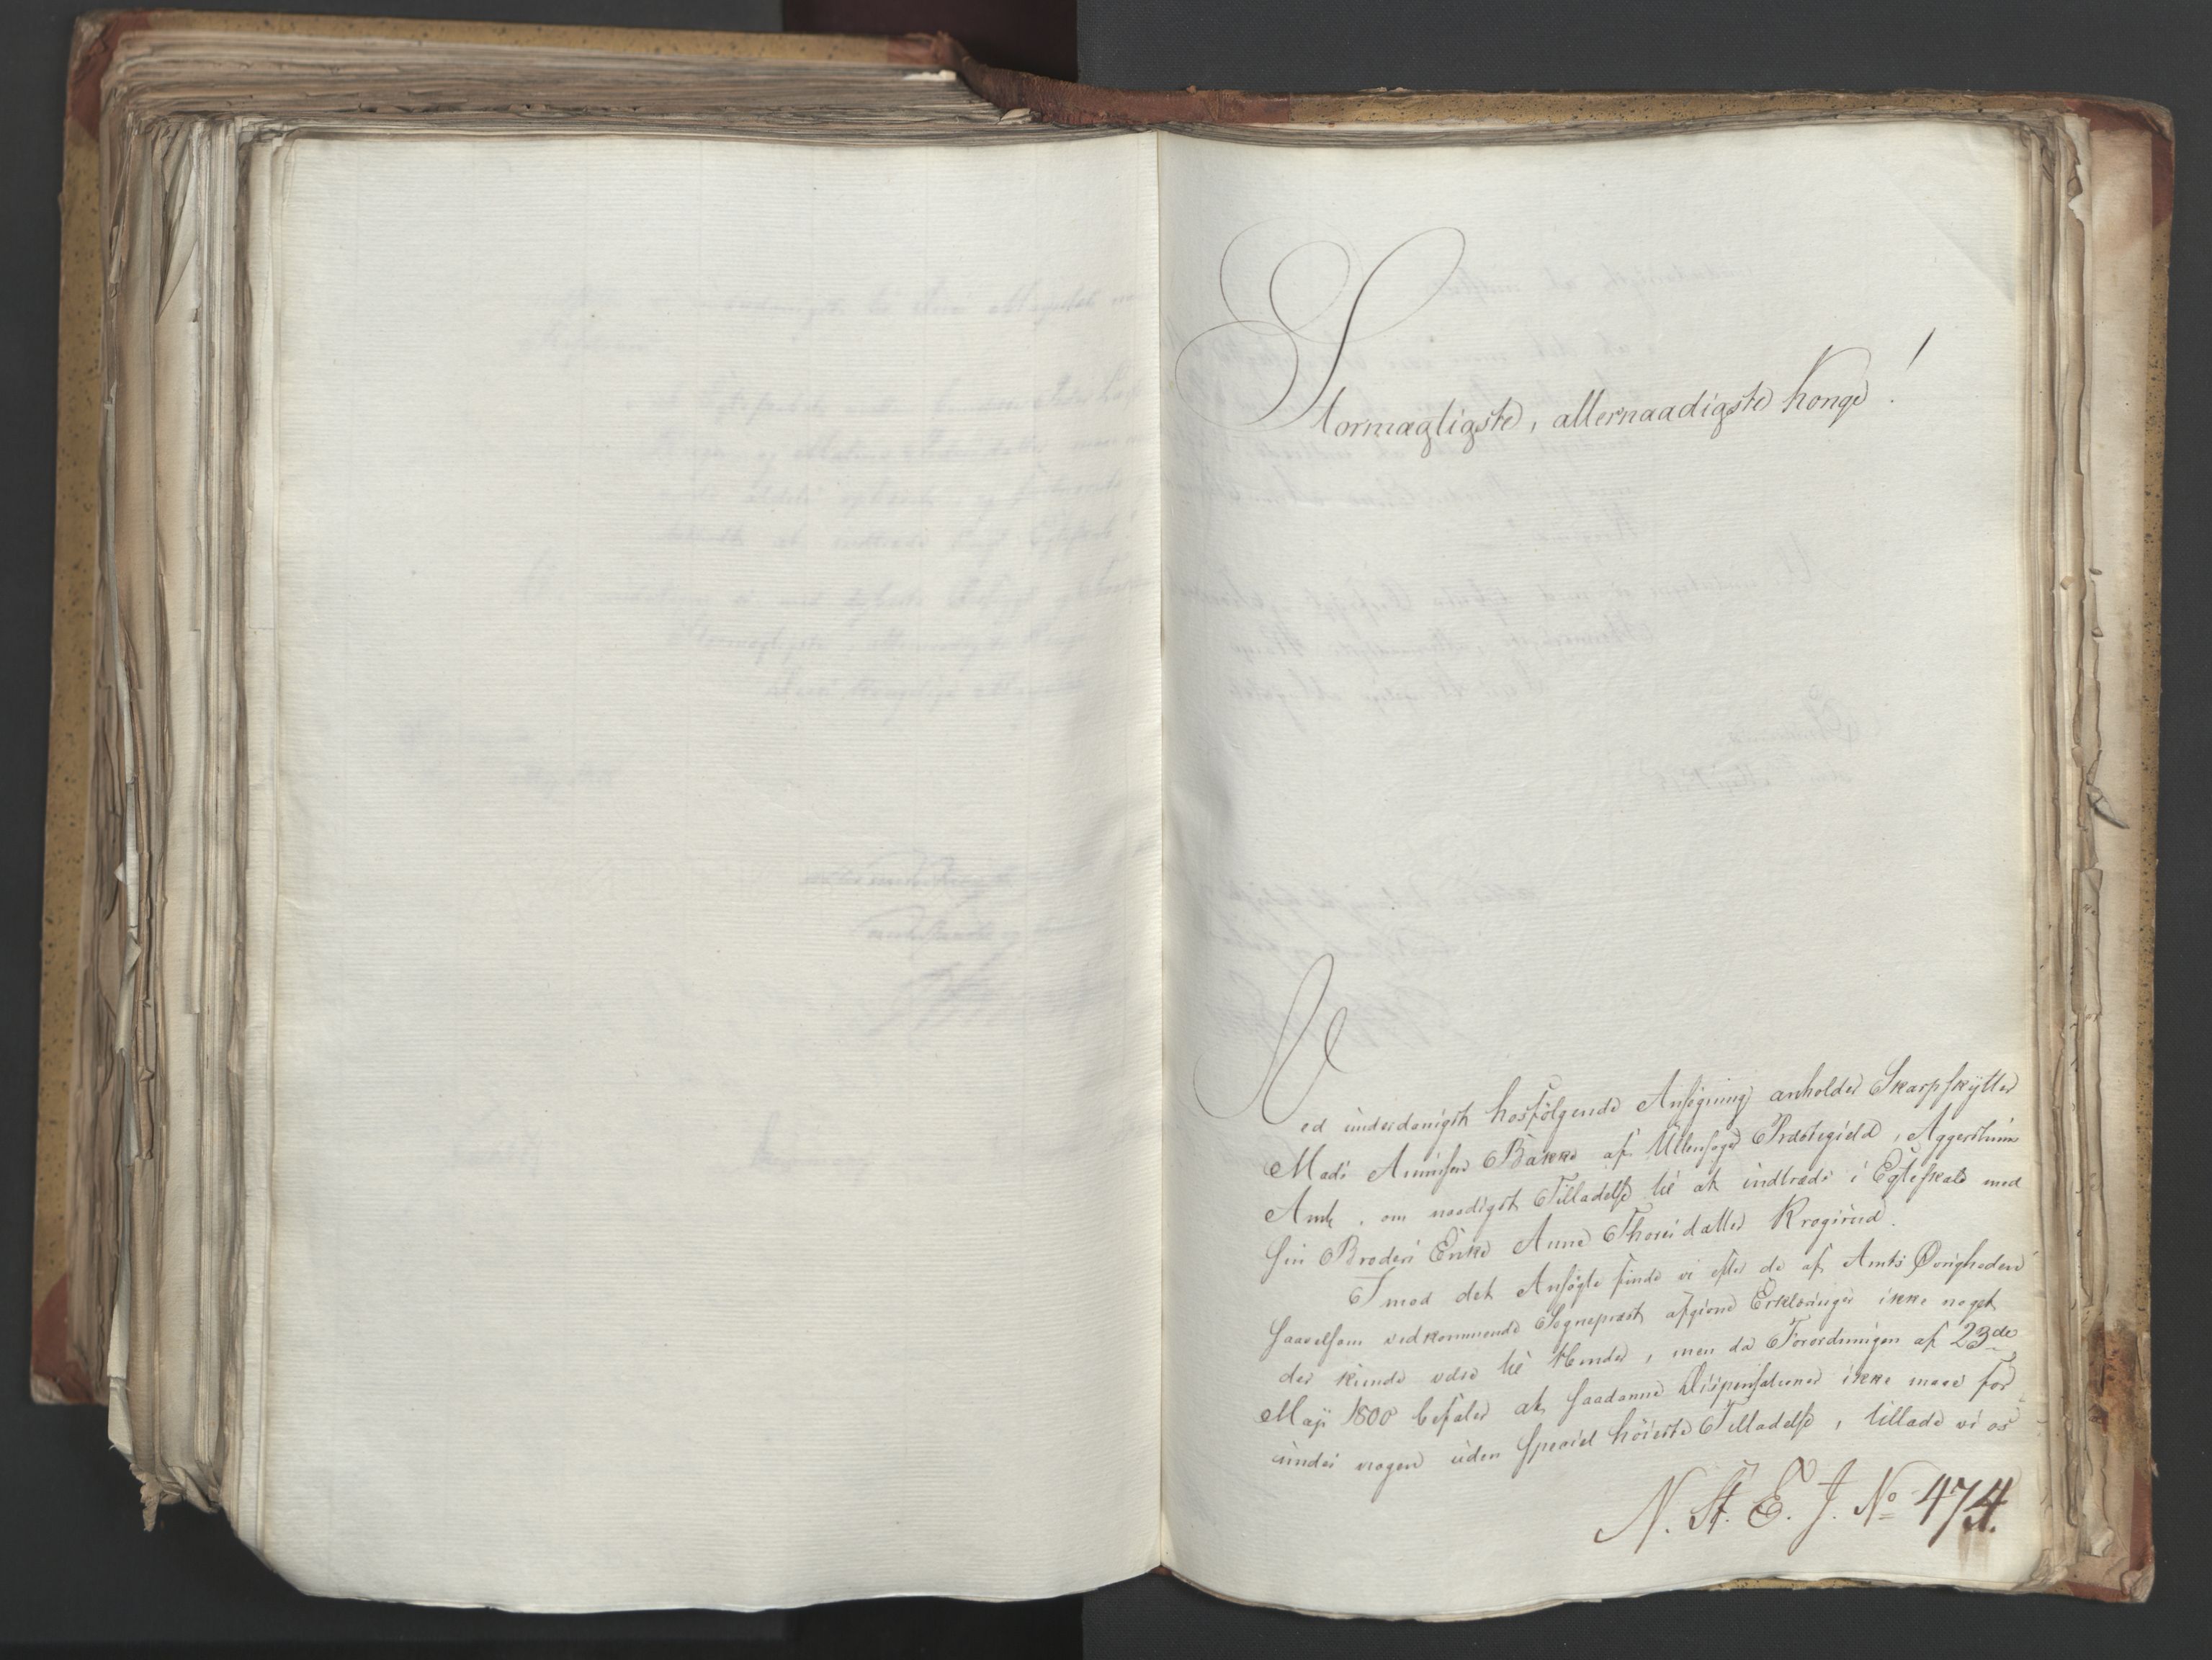 Stormægtigste, allernaadigste Konge!
Ved underdanigst hosfölgende Ansögning anholder Skarpskytter
Mads Amunsen Bakke af Ullensager Præstegield, Aggershuus
Amt, om naadigst Tilladelse til at indtræde i Egteskab med
sin Broders Enke Anne Thoresdatter Krogsrud.
Imod det Ansögte finde vi efter de af Amts Övrigheden
saavelsom vedkommende Sognepræst afgivne Erklæringer ikke noget
der kunde være til Hinder, men da Forordningen af 23de
Maji 1800 befaler at saadanne Dispensationer ikke maae for
undes nogen uden speciel höieste Tilladelse, tillade vi os
N. St. E. J. No 474.